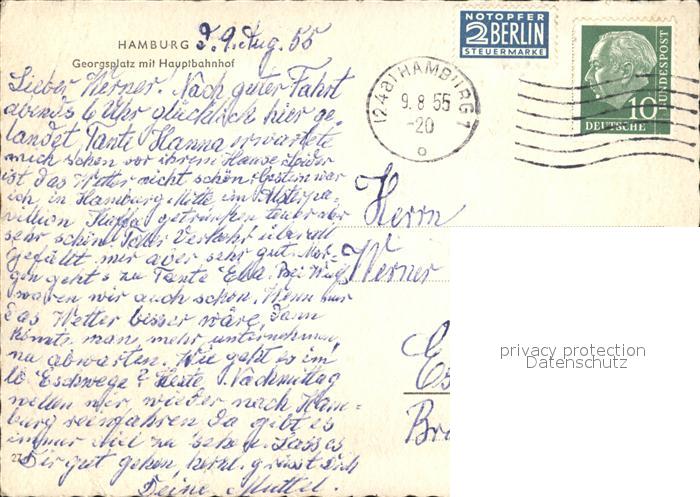 HAMBURG
Georgsplatz mit Hauptbahnhof
d. 9. Aug. 55
NOTOPFER
2 BERLIN
STEUERMARKE
(24a) HAMBURG 1
9.8.55
-20
o
DEUTSCHE
BUNDESPOST
10
Lieber Werner! Nach guter Fahrt
abends 6 Uhr glücklich hier ge-
landet, Tante Hanna erwartete
mich schon vor ihrem Hause. Leider
ist das Wetter nicht schön. Gestern war
ich in Hamburg Mitte im Alsterpa-
villion Kaffee getrunken teuer aber
sehr schön. Der Verkehr überall
gefällt mir aber sehr gut. Mor-
gen geht's zu Tante Ella. Bei
waren wir auch schon. Wenn nur
das Wetter besser wäre, dann
könnte man mehr unternehmen,
na abwarten. Wie geht es im
lb Eschwege? Heute Nachmittag
wollen wir wieder nach Ham-
burg reinfahren. Da gibt es
immer viel zu sehen. Lass es
Dir gut gehen, herzl. grüsst Dich
Deine Muttel.
Herrn
Werner
privacy protection
Datenschutz